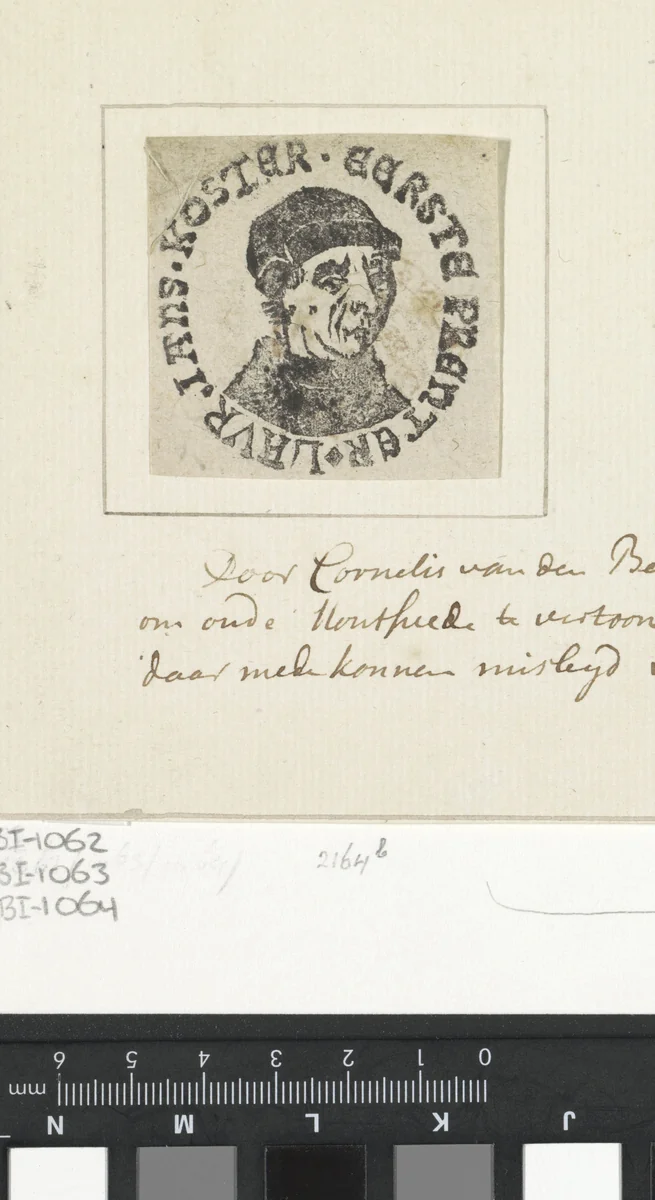 LAVR. JANS. KOSTER. EERSTE PRENTER.
Door Cornelis van den Be
om oude Houtsneede te vertoon
daar mede konnen misleyd
BI-1062
BI-1063
BI-1064
2164b
mm 6 5 4 3 2 1 0
N M L K J